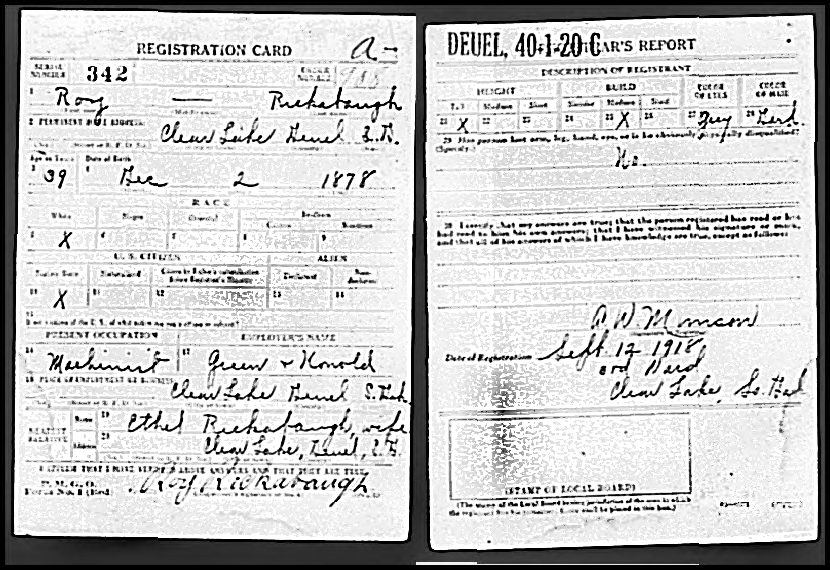 REGISTRATION CARD A-
SERIAL NUMBER 342 ORDER NUMBER
1 Roy — Rickabaugh
2 PERMANENT HOME ADDRESS:
Clear Lake Deuel S.D.
Age in Years Date of Birth
3 39 4 Dec 2 1878
RACE
White Negro Oriental Indian
Citizen Noncitizen
5 X 6 7 8 9
U. S. CITIZEN ALIEN
Native Born Naturalized Citizen by Father's Naturalization Before Registrant's Majority Declarant Non-declarant
10 X 11 12 13 14
15
If not a citizen of the U. S., of what nation are you a citizen or subject?
PRESENT OCCUPATION EMPLOYER'S NAME
16 Machinist 17 Green & Konold
18 PLACE OF EMPLOYMENT OR BUSINESS
Clear Lake Deuel S.Dak.
NEAREST RELATIVE
Name 19 Ethel Rickabaugh, wife
Address 20 Clear Lake, Deuel, S.D.
I AFFIRM THAT I HAVE VERIFIED ABOVE ANSWERS AND THAT THEY ARE TRUE
P. M. G. O.
Form No. 1 (Red) Roy Rickabaugh
DEUEL, 40-1-20 C AR'S REPORT
DESCRIPTION OF REGISTRANT
HEIGHT BUILD COLOR OF EYES COLOR OF HAIR
Tall Medium Short Slender Medium Stout
21 X 22 23 24 25 X 26 27 Grey 28 Dark
29 Has person lost arm, leg, hand, eye, or is he obviously physically disqualified?
(Specify.)
No.
30 I certify that my answers are true; that the person registered has read or has
had read to him his own answers; that I have witnessed his signature or mark,
and that all of his answers of which I have knowledge are true, except as follows:
Date of Registration Sept. 12 1918
3rd Ward
Clear Lake, So. Dak
(STAMP OF LOCAL BOARD)
(The stamp of the Local Board having jurisdiction of the area in which
the registrant has his permanent home shall be placed in this box.)